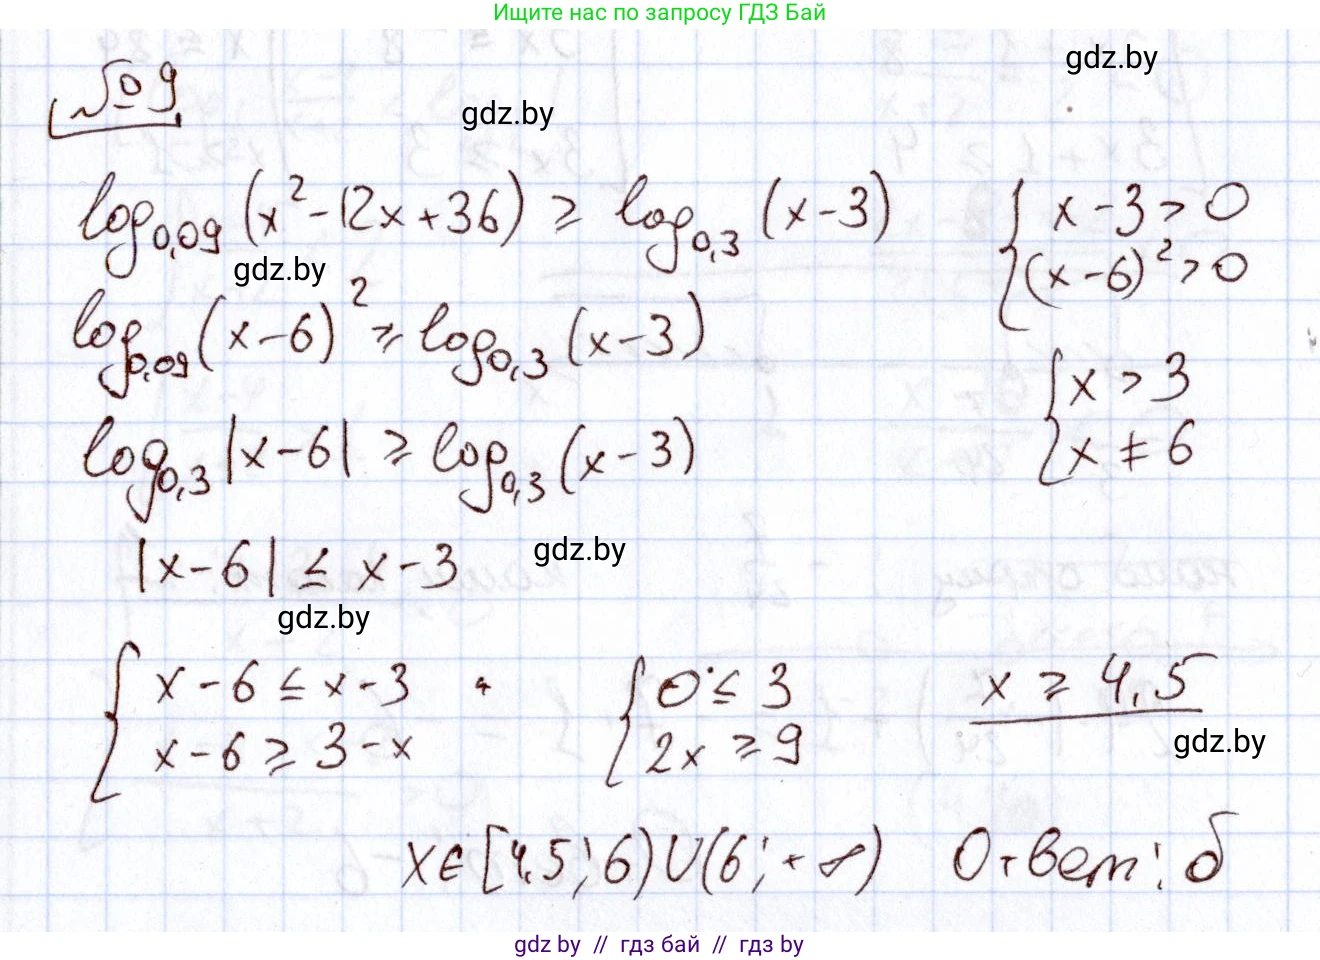 Ищите нас по запросу ГДЗ Бай
№ 9
gdz.by
gdz.by
log_{0,09} (x² - 12x + 36) ≥ log_{0,3} (x - 3)
{ x - 3 > 0
(x - 6)² > 0
gdz.by
log_{0,09} (x - 6)² ≥ log_{0,3} (x - 3)
{ x > 3
x ≠ 6
log_{0,3} |x - 6| ≥ log_{0,3} (x - 3)
|x - 6| ≤ x - 3
gdz.by
gdz.by
{ x - 6 ≤ x - 3
x - 6 ≥ 3 - x
{ 0 ≤ 3
2x ≥ 9
x ≥ 4,5
gdz.by
x ∈ [4,5; 6) ∪ (6; +∞) Ответ: б
gdz.by // гдз бай // гдз by